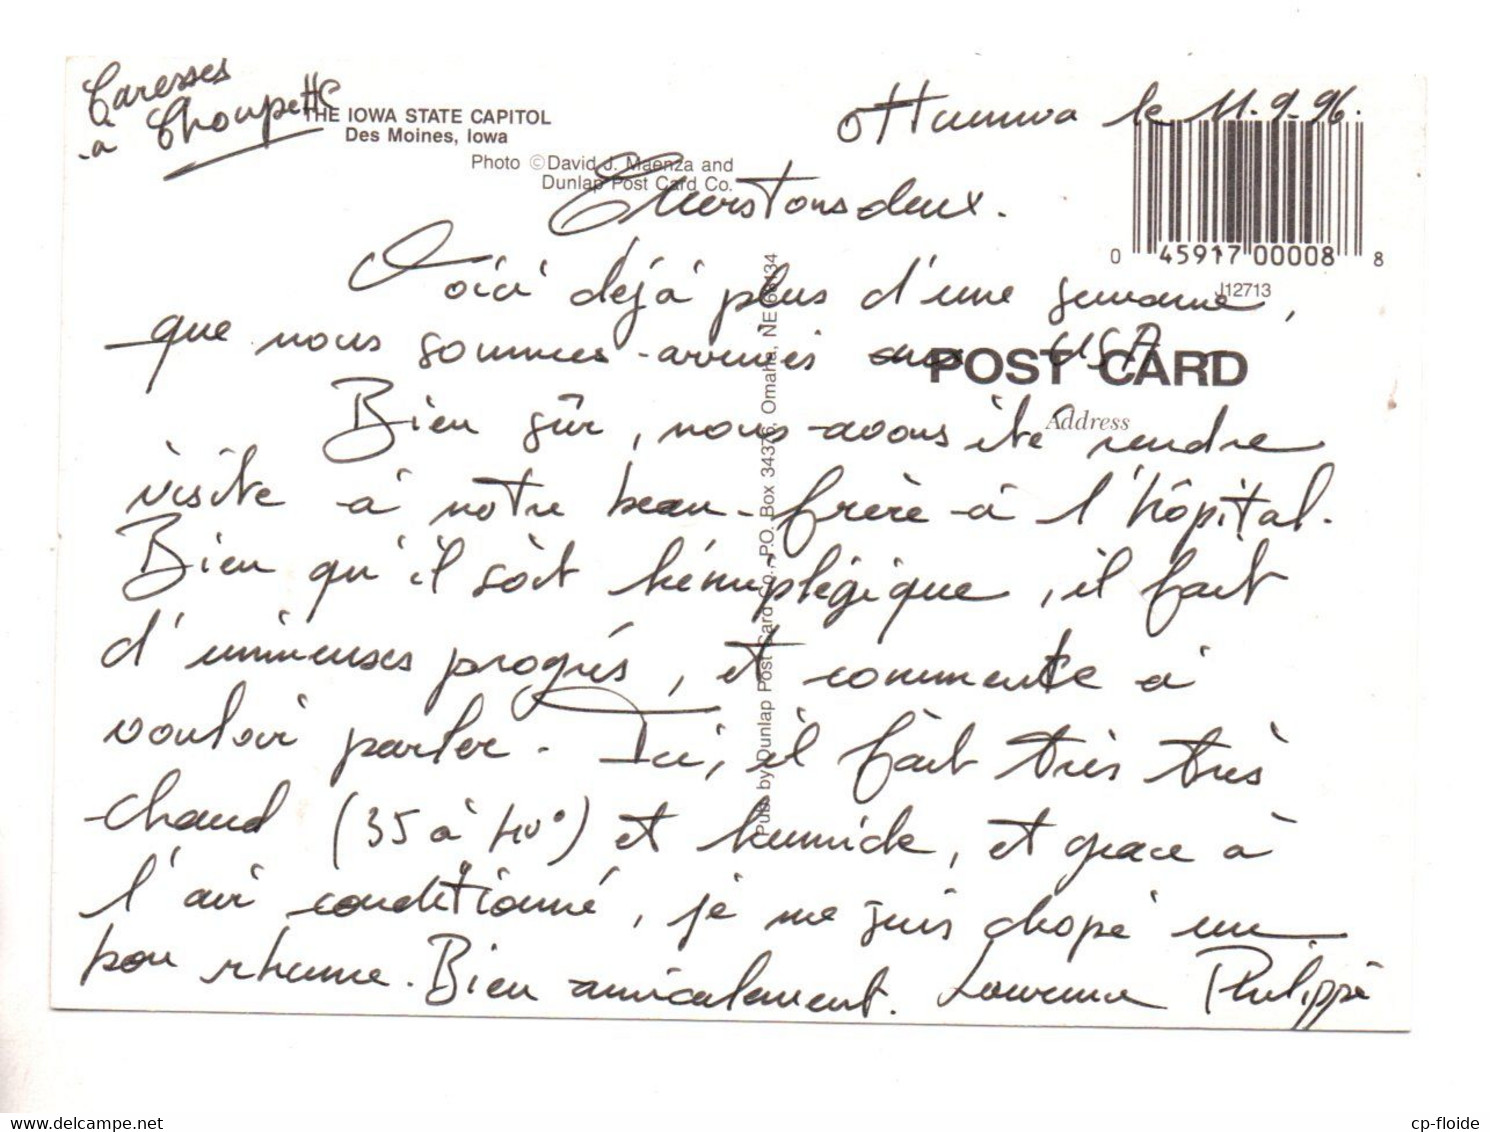 Caresses
à Choupette
THE IOWA STATE CAPITOL
Des Moines, Iowa
Photo ©David J. Maenza and
Dunlap Post Card Co.
Ottumwa le 11.9.96.
Chers Tous deux.
0 45917 00008 8
J12713
Voici déjà plus d'une semaine,
que nous sommes arrivés aux USA.
POST CARD
Address
Bien sûr, nous avons été rendre
visite à notre beau-frère à l'hôpital.
Bien qu'il soit hémiplégique, il fait
d'immenses progrès, et commente à
vouloir parler. Ici, il fait très très
chaud (35 à 40°) et humide, et grace à
l'air conditionné, je me suis chopé un
bon rhume. Bien amicalement. Laurence Philippe
Pub. by Dunlap Post Card Co., P.O. Box 34376, Omaha, NE 68134
delcampe.net
cp-floide